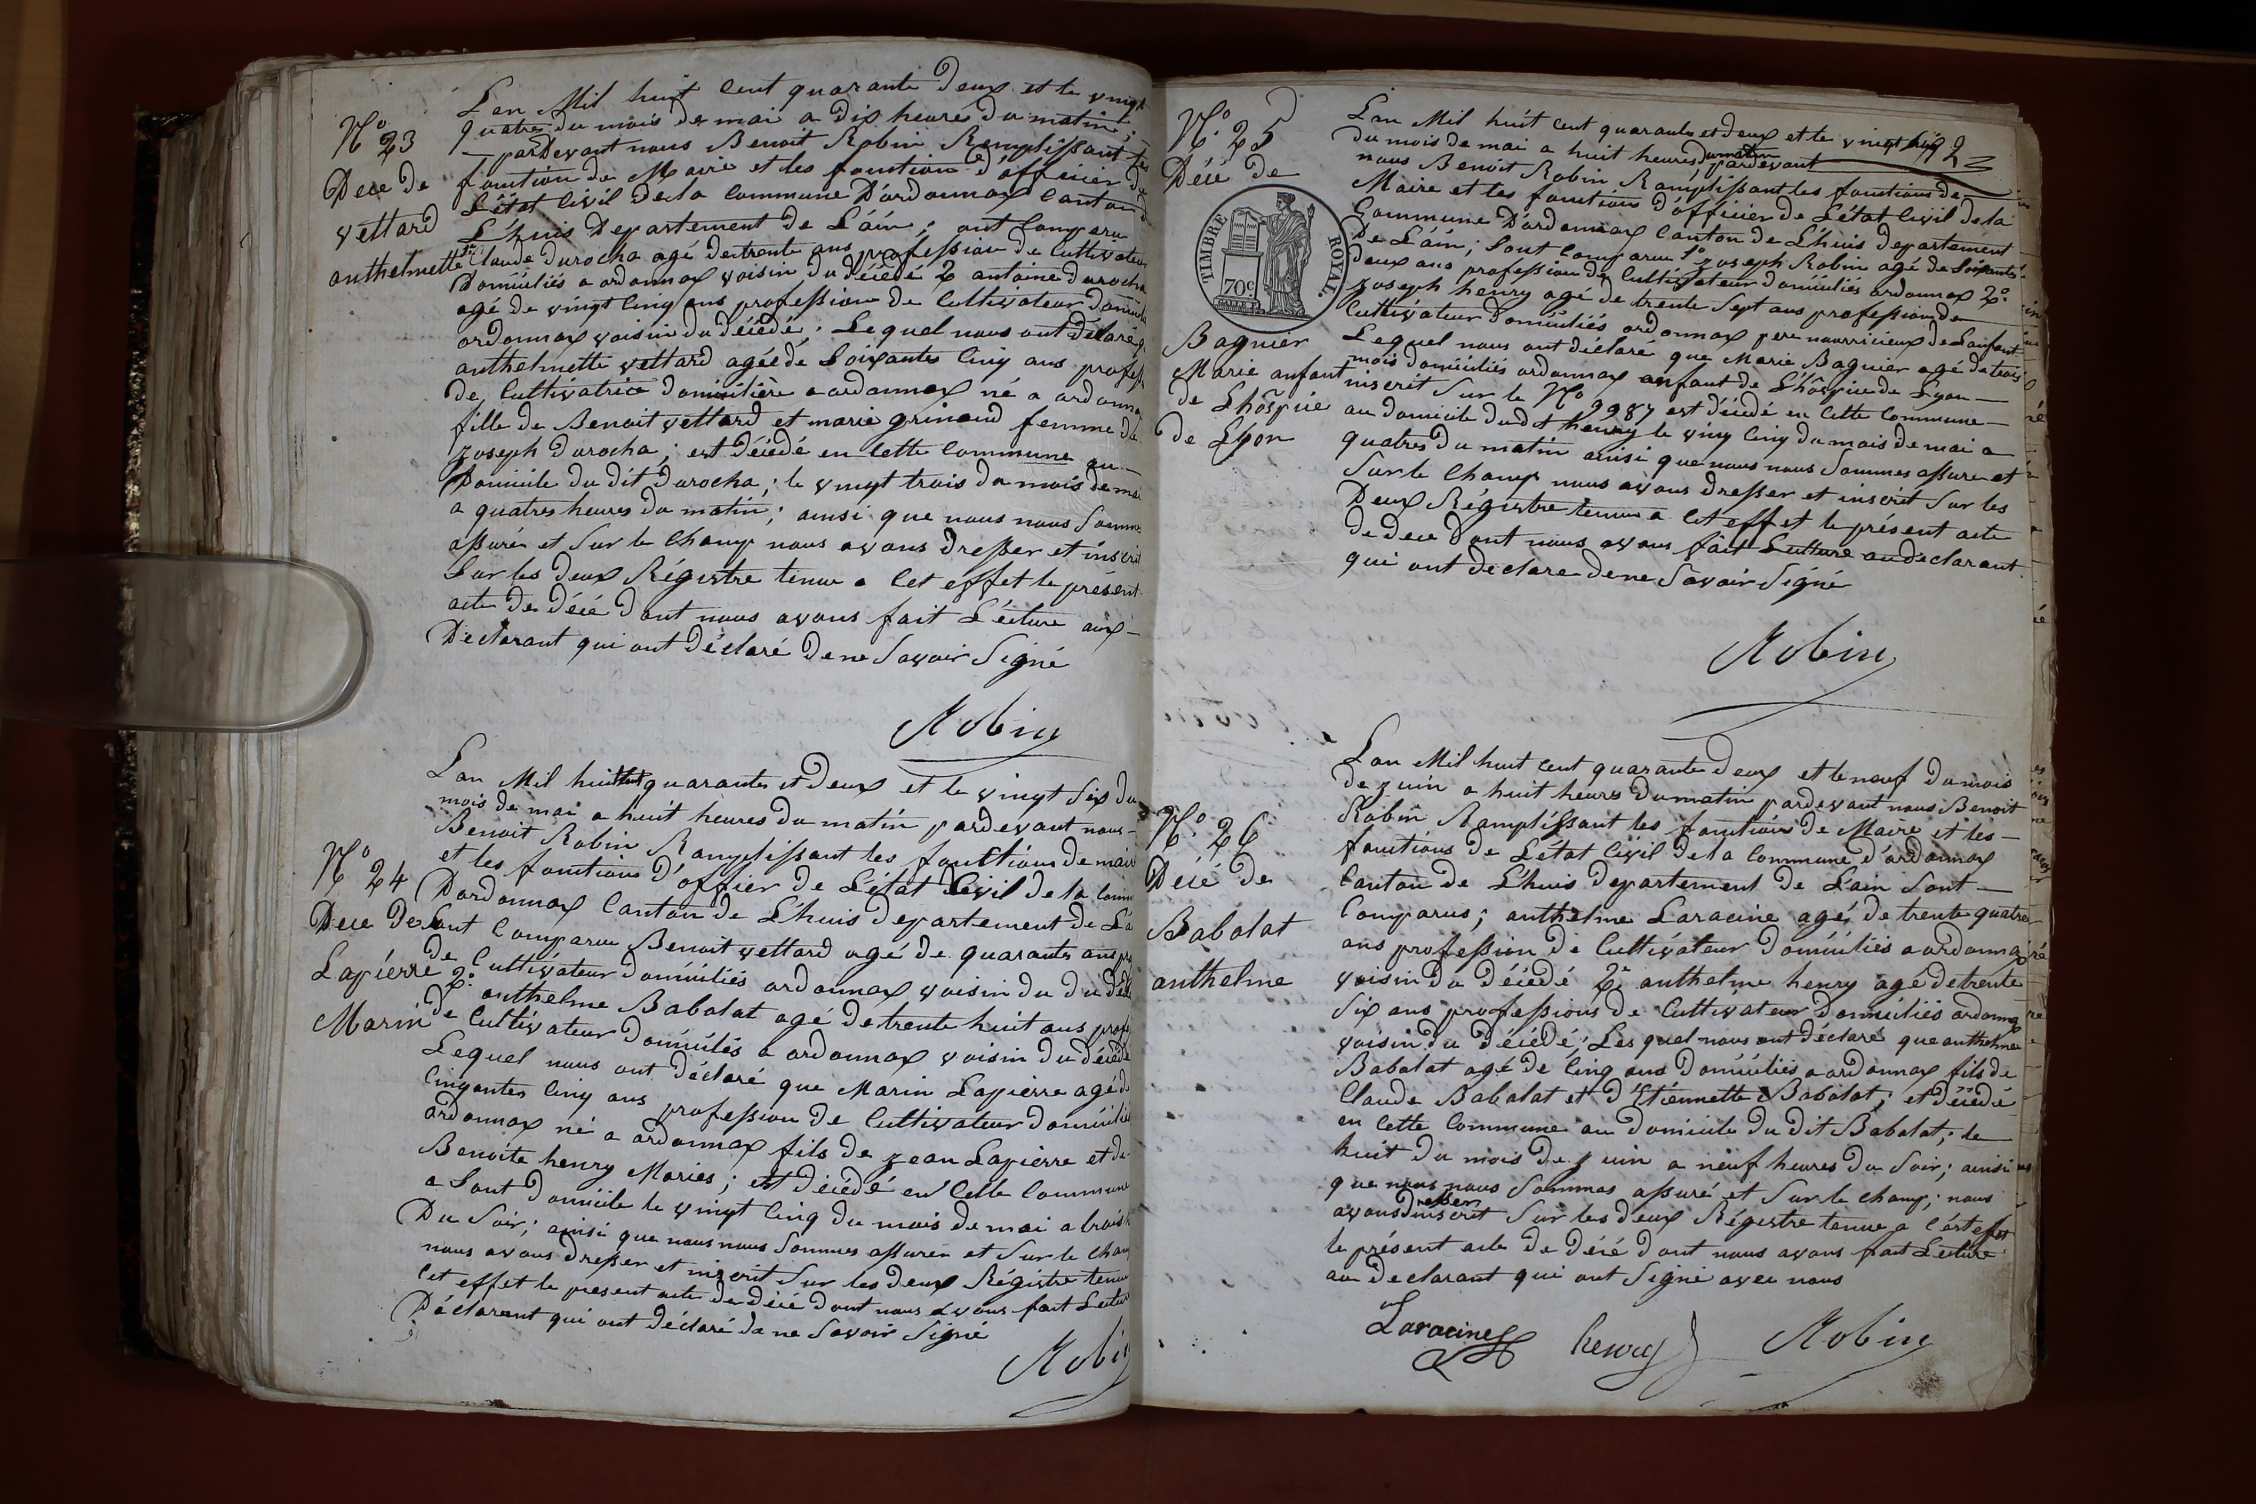 N.º 23
Dece de
vettard
anthelmette
L'an Mil huit Cent quarante Deux et le vingt
quatres du mois de mai a Dix heures du matin;
parDevant nous Benoit Robin Remplissant les
fonction de Maire et les fonction d'officier de
L'état Civil dela Commune D'ordonnax Canton de
L'huis Departement de L'áin; ont Comparu
Claude Durocha agé de trente ans profession de Cultivateur
Domiciliés a ordonnax voisin du décédé 2º antoine durocha
agé de vingt Cinq ans profession de Cultivateur Domicilié
ordonnax voisin du décédé; Lequel nous ont déclaré
anthelmette vettard agée de Soixantes Cinq ans profess
de Cultivatrice domicilière a ordonnax né a ordonnax
fille de Benoit vettard et marie grinand femme de
Joseph Durocha; est décédé en Cette Commune au
Domicile du dit Durocha; le vingt trois du mois de mai
a quatres heures du matin; ainsi que nous nous Somme
assurér et Sur le Champ nous avons Dresser et inscrit
Sur les Deux Régistre tenue a Cet effet le présent
acte de décé Dont nous avons fait L'écture aux
Déclarant qui ont déclaré De ne Savoir Signé
Robin
N.º 24
Dece de
Lapiérre
Marin
L'an Mil huit Cent quarantes et Deux et le vingt Six du
mois de mai a huit heures du matin pardevant nous
Benoit Robin Ramplissant les fonctions de maire
et les fonctions d'offier de L'état Civil de la Comm
D'ordonnax Canton de L'huis departement de L'a
Sont Comparu Benoit vettard agé de quarante ans pro
de Cultivateur domiciliés ordonnax voisin du du décé
2º anthelme Babolat agé de trente huit ans profe
de Cultivateur domiciliés a ordonnax voisin du décédé
Lequel nous ont déclaré que Marin Lapierre agé de
Cinqantes Cinq ans profession de Cultivateur domicilié
ordonnax né a ordonnax fils de Jean Lapierre et de
Benoite henry Mariés; est décédé en Cette Commune
a Sont Domicile le vingt Cinq du mois de mai a trois h
Du Soir; ainsi que nous nous Sommes assurér et Sur le Champ
nous avons dresser et inscrit Sur les deux Régistre tenue
Cet effet le present acte de décé dont nous avons fait Lectur
Déclarant qui ont déclaré de ne Savoir Signé
Robin
N.º 25
Décé de
TIMBRE ROYAL.
70c
Bagnier
Marie anfant
de L'hôspice
de Lyon
L'an Mil huit Cent quarantes et deux et le vingt
du mois de mai a huit heures du matin pardevant
nous Benoit Robin Ramplissant les fonctions de
Maire et les fonctions d'officier de L'état Civil dela
Commune D'ordonnax Canton de L'huis departement
De L'áin; Sont Comparu 1º Joseph Robin agé de Soixante
deux ans profession de Cultivateur domiciliés ordonnax 2º
Joseph henry agé de trente Sept ans profession de
Cultivateur domiciliés ordonnax pere nourricieux de L'anfant
Lequel nous ont déclaré que Marie Bagnier agé de trois
mois domiciliés ordonnax anfant de L'hôspice de Lyon
inscrit Sur le Nº 9987 est décédé en Cette Commune
au domicile dudt henry le ving Cinq du mois de mai a
quatres du matin ainsi que nous nous Sommes assure et
Sur le Champ nous avons dresser et inscrit Sur les
Deux Régistre tenue a Cet effet le présent acte
de dece dont nous avons fait Lecture au declarant
qui ont declare de ne Savoir Signé
Robin
N.º 26
Décé de
Babolat
anthelme
L'an Mil huit Cent quarante deux et le neuf du mois
de Juin a huit heures du matin pardevant nous Benoit
Robin Ramplissant les fonctions de Maire et les
fonctions de L'état Civil dela Commune d'ordonnax
Canton de L'huis departement de L'ain Sont
Comparus; anthelme Laracine agé de trente quatre
ans profession de Cultivateur domiciliés a ordonnax
voisin du décédé 2º anthelme henry agé de trente
Six ans professions de Cultivateur domiciliés ordonnax
voisin du décédé; Les quel nous ont déclaré que anthelme
Babolat agé de Cinq ans domiciliés a ordonnax fils de
Claude Babolat et d'Etiennette Babolat; et décédé
en Cette Commune au domicile du dit Babolat; le
huit du mois de Juin a neuf heures du Soir; ainsi
que nous nous Sommes assuré et Sur le champ; nous
avons dresser inscrit Sur les deux Régistre tenue a Cet effet
le présent acte de décé dont nous avons fait Lecture
au declarant qui ont Signé avec nous
Laracine henry Robin